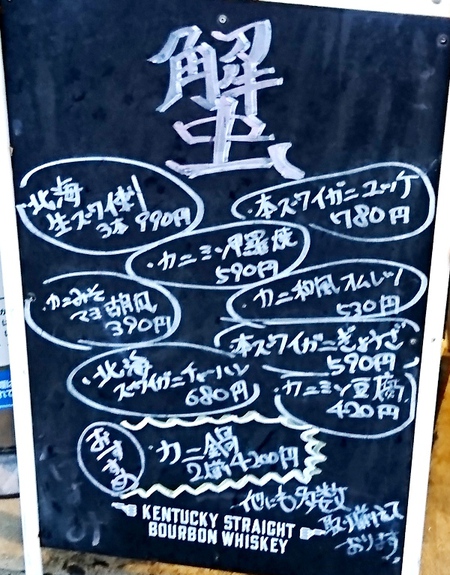 蟹
北海
生ズワイ刺
3本 990円
・本ズワイガニユッケ
780円
・カニミソ甲羅焼
590円
・カニみそ
マヨ胡瓜
390円
・カニ和風オムレツ
530円
・本ズワイガニぎょうざ
590円
・北海
ズワイガニチャーハン
680円
・カニミソ豆腐
420円
おすすめ
・カニ鍋
2人前 4200円
他にも多数
取り揃えて
おります
KENTUCKY STRAIGHT
BOURBON WHISKEY